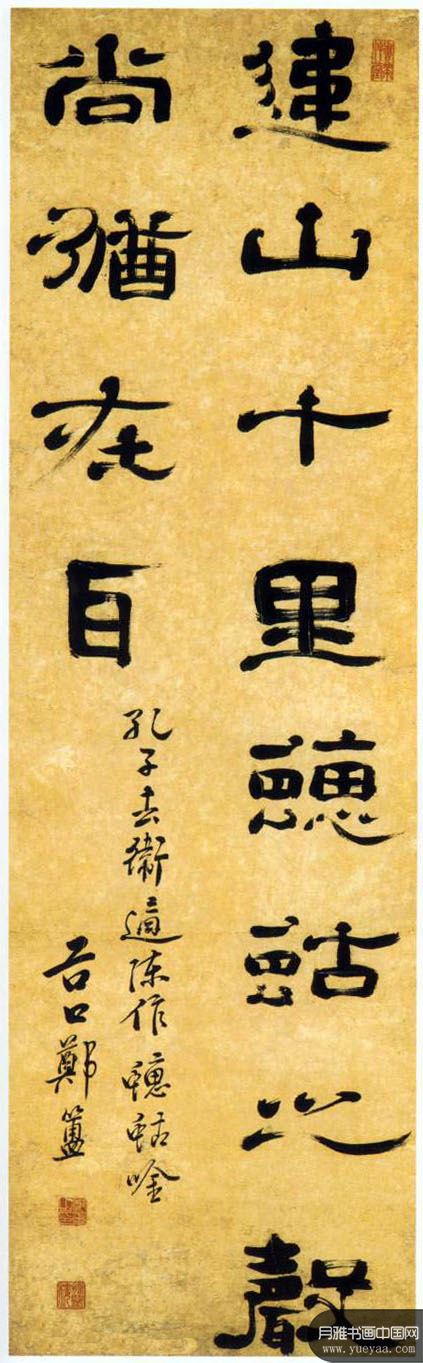 違山十里蟪蛄之聲
尚猶在耳
孔子去衛適陳作蟪蛄吟
谷口鄭簠
月雅书画中国网
www.yueyaa.com